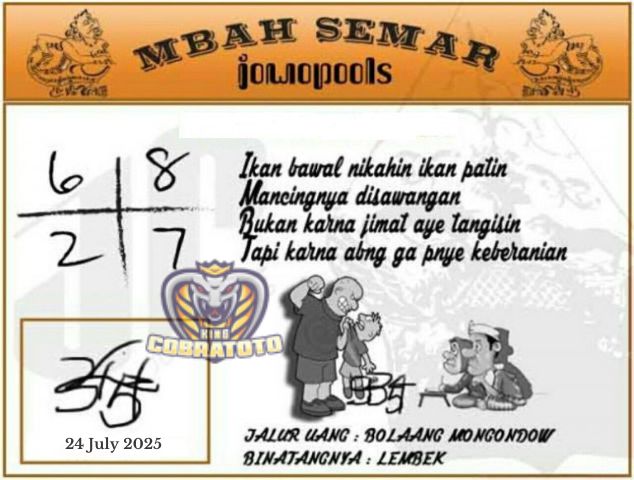 MBAH SEMAR
jowopools
6 8
2 7
Ikan bawal nikahin ikan patin
Mancingnya disawangan
Bukan karna jimat aye tangisin
Tapi karna abng ga pnye keberanian
KING
COBRATOTO
24 July 2025
JALUR UANG : BOLAANG MONGONDOW
BINATANGNYA : LEMBEK